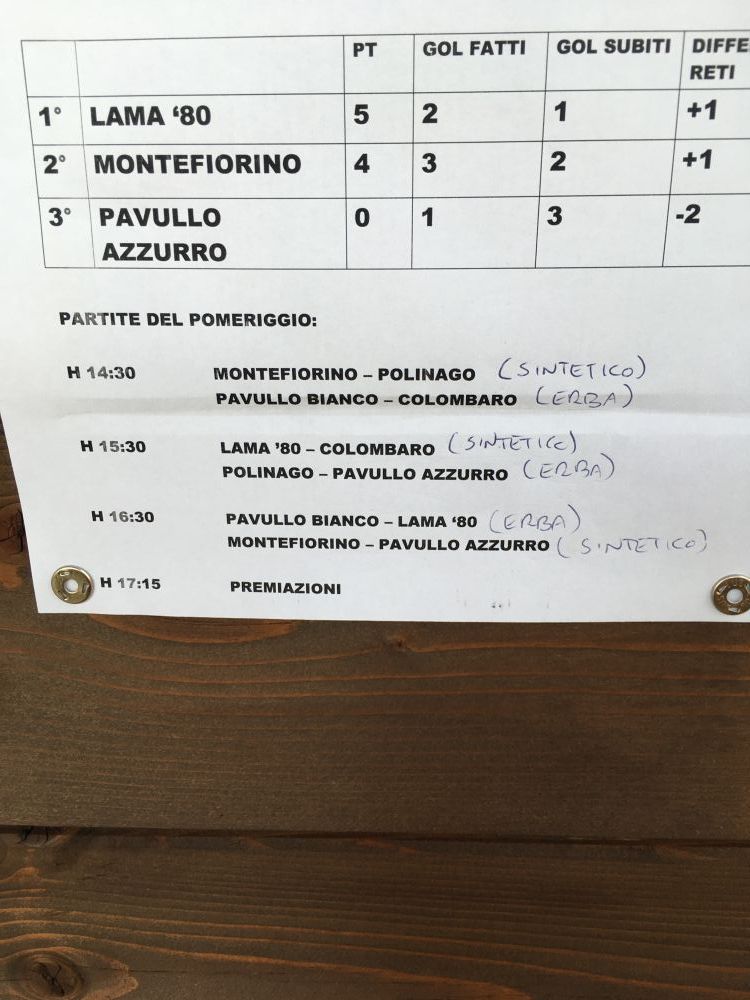 PT GOL FATTI GOL SUBITI DIFFE
RETI
1° LAMA ‘80 5 2 1 +1
2° MONTEFIORINO 4 3 2 +1
3° PAVULLO 0 1 3 -2
AZZURRO
PARTITE DEL POMERIGGIO:
H 14:30 MONTEFIORINO – POLINAGO (SINTETICO)
PAVULLO BIANCO – COLOMBARO (ERBA)
H 15:30 LAMA ’80 – COLOMBARO (SINTETICO)
POLINAGO – PAVULLO AZZURRO (ERBA)
H 16:30 PAVULLO BIANCO – LAMA ‘80 (ERBA)
MONTEFIORINO – PAVULLO AZZURRO (SINTETICO)
H 17:15 PREMIAZIONI